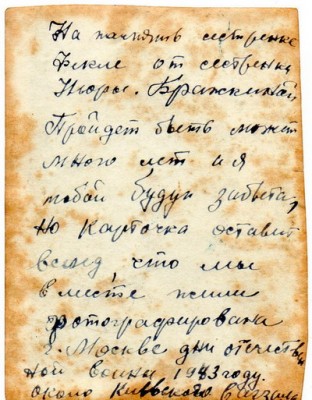 На память сестренке
Фекле от сестренки
Нюры. Бражкиной
Пройдет быть может
много лет и я
тобой буду забыта,
Но карточка оставит
вслед что мы
вместе жили
фотографирована
г. Москве дни отечествен
ной воины 1943 году
около Киевского вагзала